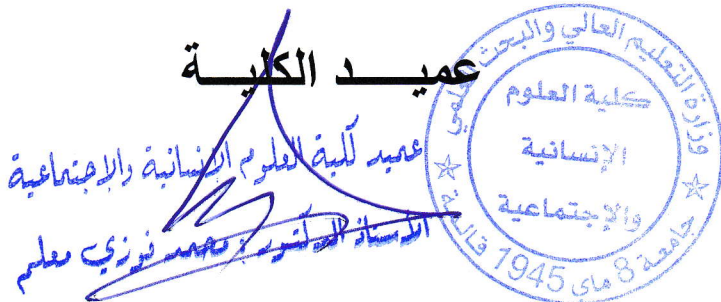 عميــد الكليــة
عميد كلية العلوم الإنسانية والاجتماعية
الأستاذ الدكتور : محمد فوزي معلم
وزارة التعليم العالي والبحث العلمي
كلية العلوم
الإنسانية
والإجتماعية
جامعة 8 ماي 1945 قالمة